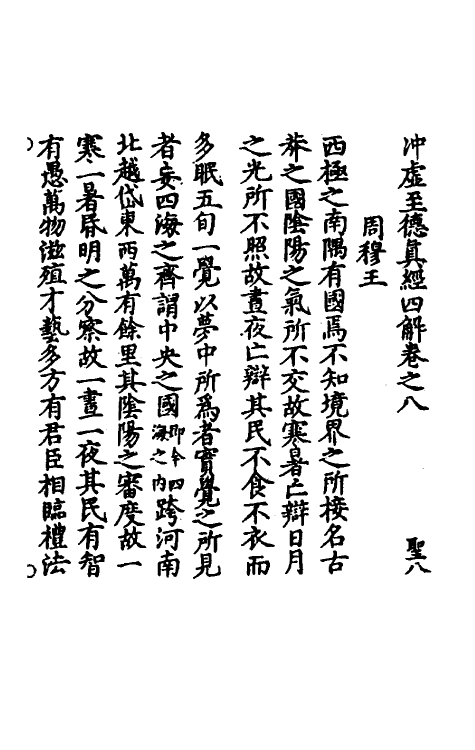 冲虚至德真經四解卷之八
聖八
周穆王
西極之南隅有國焉不知境界之所接名古
莽之國陰陽之氣所不交故寒暑亡辯日月
之光所不照故晝夜亡辯其民不食不衣而
多眠五旬一覺以夢中所爲者實覺之所見
者妄四海之齊謂中央之國即今四海之内跨河南
北越岱東西萬有餘里其陰陽之審度故一
寒一暑昏明之分察故一晝一夜其民有智
有愚萬物滋殖才藝多方有君臣相臨禮法